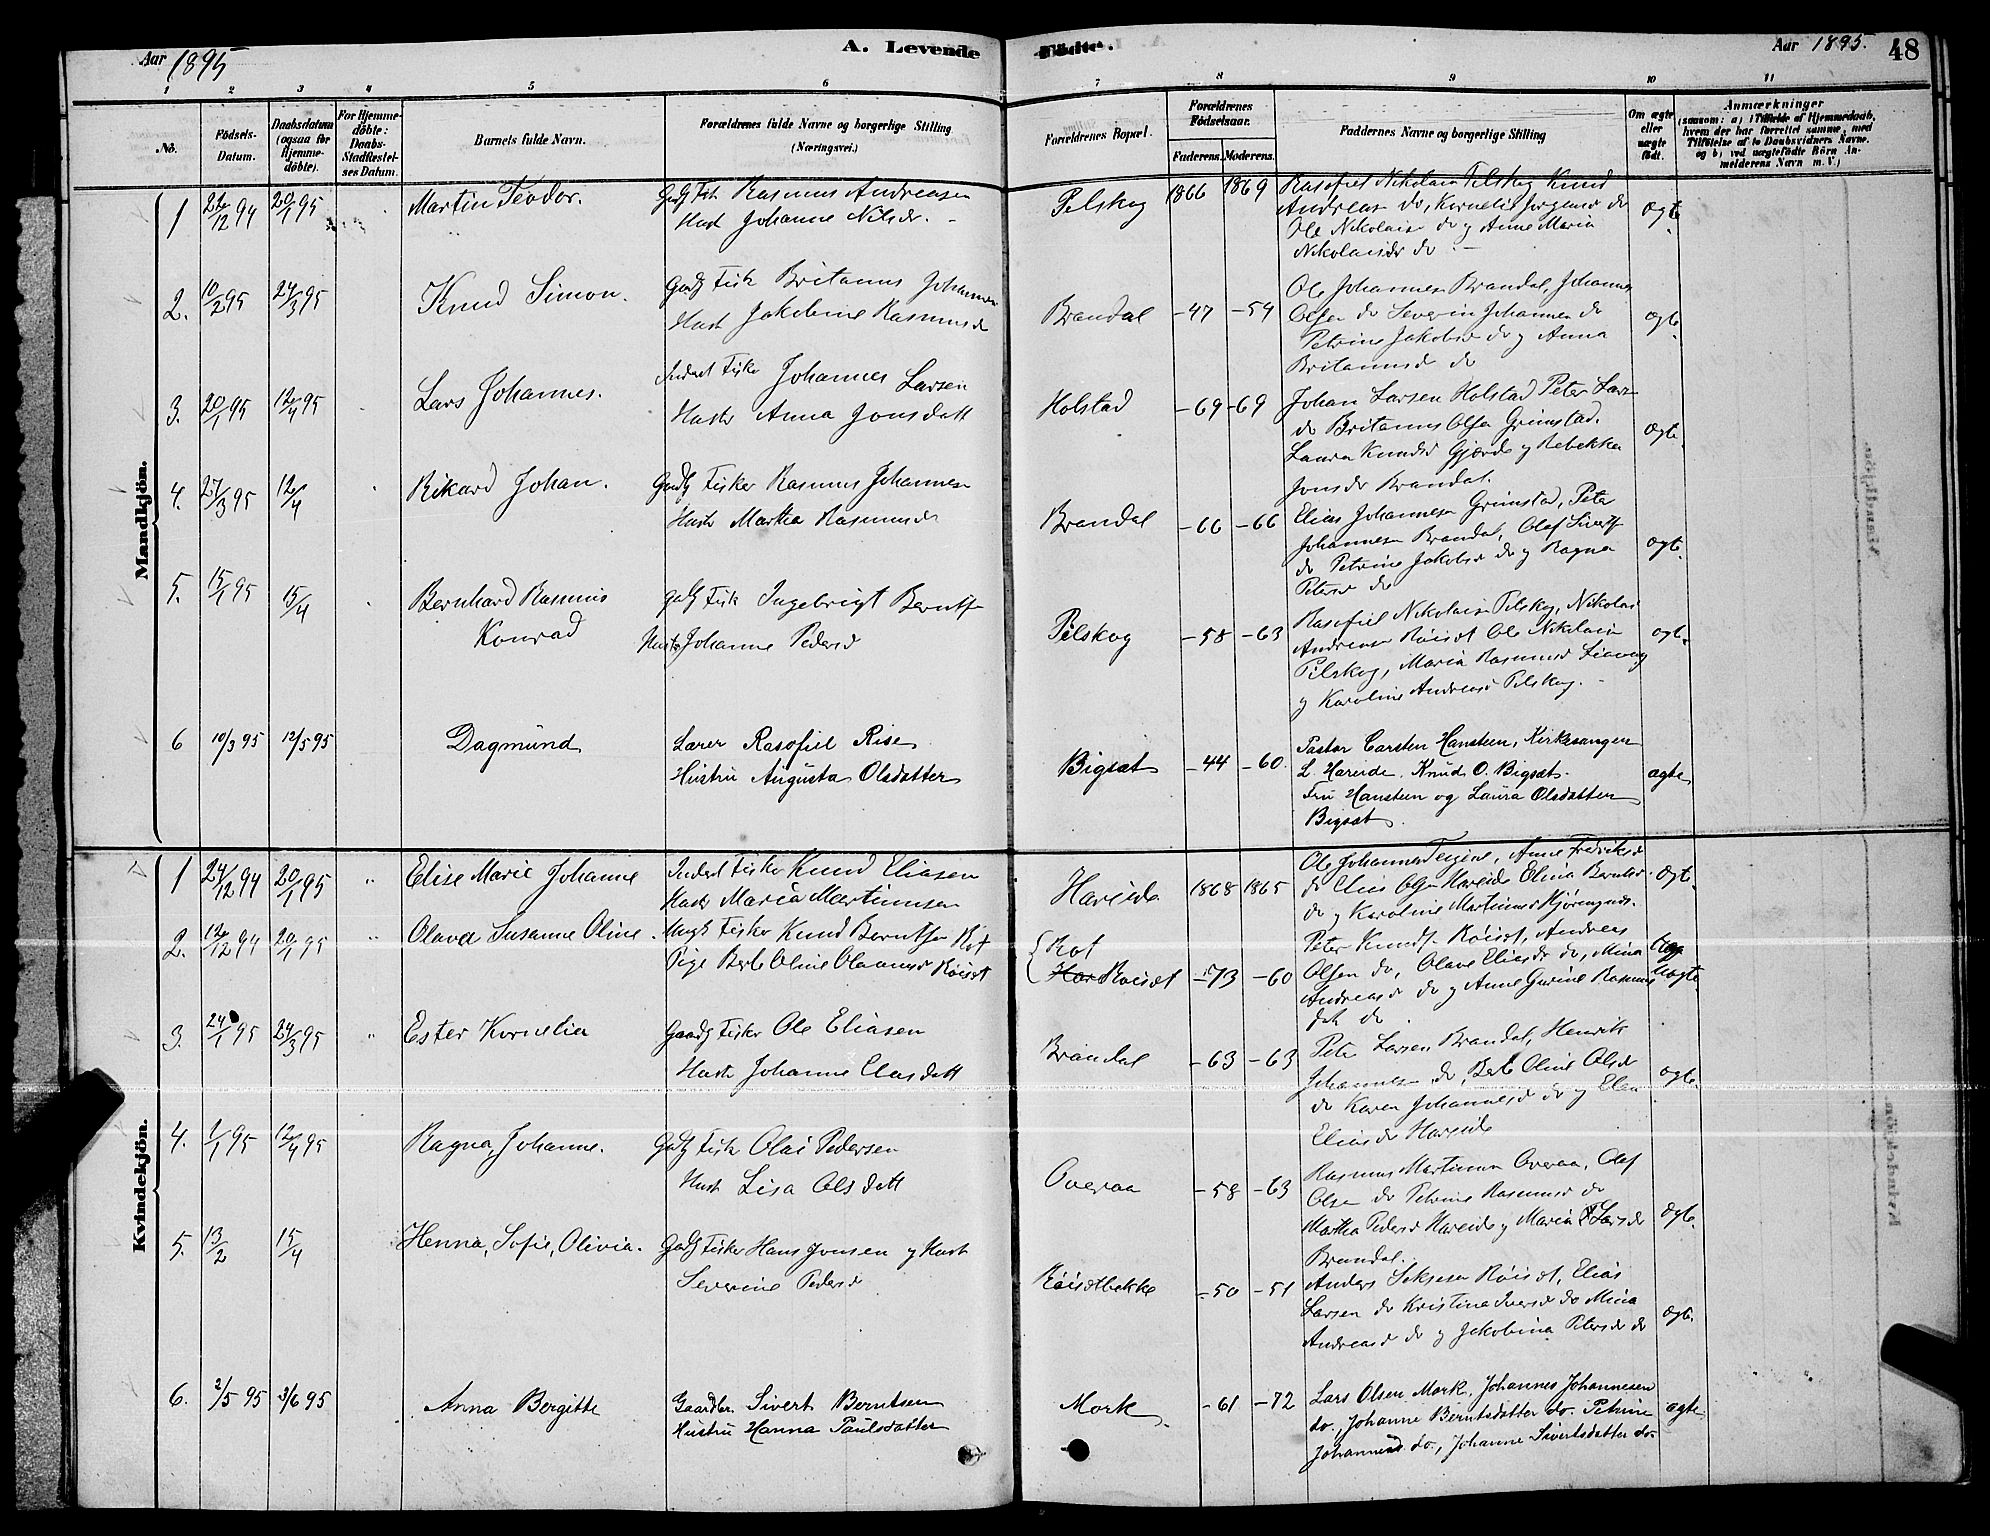 Aar 1895 A. Levende Fødte. Aar 1895. 48
1 2 3 4 5 6 7 8 9 10 11
No.
Fødsels-
Datum.
Daabsdatum
(ogsaa for
Hjemme-
døbte).
For Hjemme-
døbte:
Daabs-
Stadfæstel-
ses Datum.
Barnets fulde Navn.
Forældrenes fulde Navne og borgerlige Stilling
(Næringsvei.)
Forældrenes Bopæl.
Forældrenes
Fødselsaar.
Faderens. Moderens.
Faddernes Navne og borgerlige Stilling
Om ægte
eller
uægte
født.
Anmærkninger
(saasom: a) i Tilfælde af Hjemmedaab,
hvem der har forrettet samme, med
Tilføielse af to Daabsvidners Navne.
og b) ved uægtefødte Børn An-
melderens Navn m. V.)
Mandkjön.
1 12 94 20/1 95 Martin Teodor. Rasmus Andreasen
Hust Johanne Nilsdr.
Pilskog 1866 1869 Rasofiel Nikolaisen Pilskog Knud
Andreasen do, Kornelia Jørgensdr do
Ole Nikolaisen do y Anne Maria
Nikolaisdr do
ægte
2. 10/2 95 24/3 95 Knud Simon. Gaadb Fisk Britanus Johannesen
Hust Jakobine Rasmusdr
Brandal -47 -54 Ole Johannesen Brandal, Johannes
Olsen do Severin Johannesen do
Petrine Jakobsdr do y Anna
Britanusdr do
ægte.
3. 20/1 95 12/4 95 Lars Johannes. Inderst Fisker Johannes Larsen
Hustr Anna Jonsdatt
Holstad -69 -69 Johan Larsen Holstad Peter Larsen
do Britanus Olsen Grimstad.
Laura Knudsdr Gjerde y Rebekka
Jonsdr Brandal.
ægte.
4. 27/3 95 12/4 Rikard Johan. Gaadb Fisker Rasmus Johannesen
Hustr Martha Rasmusdr
Brandal -66 -66 Elias Johannesen Grimstad, Peter
Johannesen Brandal, Olaf Sivertsen
do Petrine Jakobsdr do y Ragna
Petersdr do
ægte.
5. 15/1 95 15/4 Bernhard Rasmus
Konrad
Gaadb Fisk Ingebrigt Berntsen
Hustr Johanne Pedersd
Pilskog -58 -63 Rasofiel Nikolaisen Pilskog, Nikolai
Andreasen Röiset Ole Nikolaisen
Pilskog, Maria Rasmusdr Liavaag
y Karoline Andreasdr Pilskog.
ægte.
6 10/3 95 12/5 95 Dagmund Lærer Rasofiel Rise
Hustru Augusta Olsdatter
Bigsæt -44 -60. Pastor Carsten Hansteen, Kirkesanger
L. Hareide, Knud O. Bigsæt.
Fru Hansteen og Laura Olsdatter
Bigsæt.
ægte
Kvindekjön.
1 24/12 94 20/1 95 " Elise Marie Johanne Inderst Fisker Knud Eliasen
Hustr Maria Martinusen
Hareide 1868 1865 Ole Johannes Teigene, Anne Fredriksdr
do Elias Olsen Hareide Elina Berntsdr
do y Karoline Martinusdr Hjørungnes.
ægte.
2. 12/12 94 20/1 95 " Olava Susanne Oline. Ungk Fisker Knud Berntsen Röt
Pige Berte Oline Olausdr Röiset
Röt
Har Röiset -73 -60 Peter Knudsen Röiset, Andreas
Olsen do, Olave Eliasdr do, Mina
Andreasdr do y Anne Gurine Rasmus
datt do.
Uægte
3. 24/1 95 24/3 95 " Ester Kornelia Gaadb Fisker Ole Eliasen
Hustr Johanne Clasdatt
Brandal -63 -63 Peter Larsen Brandal, Henrik
Johannesen do, Berte Oline Olsdr
do Karen Johannesdr do y Elen
Eliasdr Hareide
ægte.
4. 1/1 95 12/4 95 Ragna, Johanne. Gaadb Fisk Olai Pedersen
Hustr Lisa Olsdatt
Overaa -58 -63 Rasmus Martinusen Overaa, Olef
Olsen do Petrine Rasmusdr do
Martha Pedersdr Hareide y Maria Larsdr
Brandal.
ægte.
5. 13/2 15/4 Henna, Sofie, Olivia. Gaadb Fisker Hans Jonsen y Hustr
Severine Pedersd
Röisetbekke -50 -51 Anders Röiset, Elias
Larsen do Kristina Iversdr do Mina
Andreasdr do y Jakobina Petersdr do
ægte.
6. 2/5 95 3/6 95 Anna Bergitte Gaardbr. Sivert Berntsen
Hustru Hanna Paulsdatter
Mork -61 -72 Lars Olsen Mork, Johannes Johannesen
do., Johanne Berntsdatter do. Petrine
Johannesd do., Johanne Sivertsdatter do.
ægte